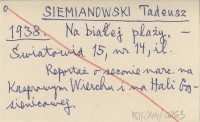 SIEMIANOWSKI Tadeusz
1938. Na białej plaży. –
Światowid 15, nr 14, il.
Reportaż o sezonie narc. na
Kasprowym Wierchu i na Hali Gą-
sienicowej.